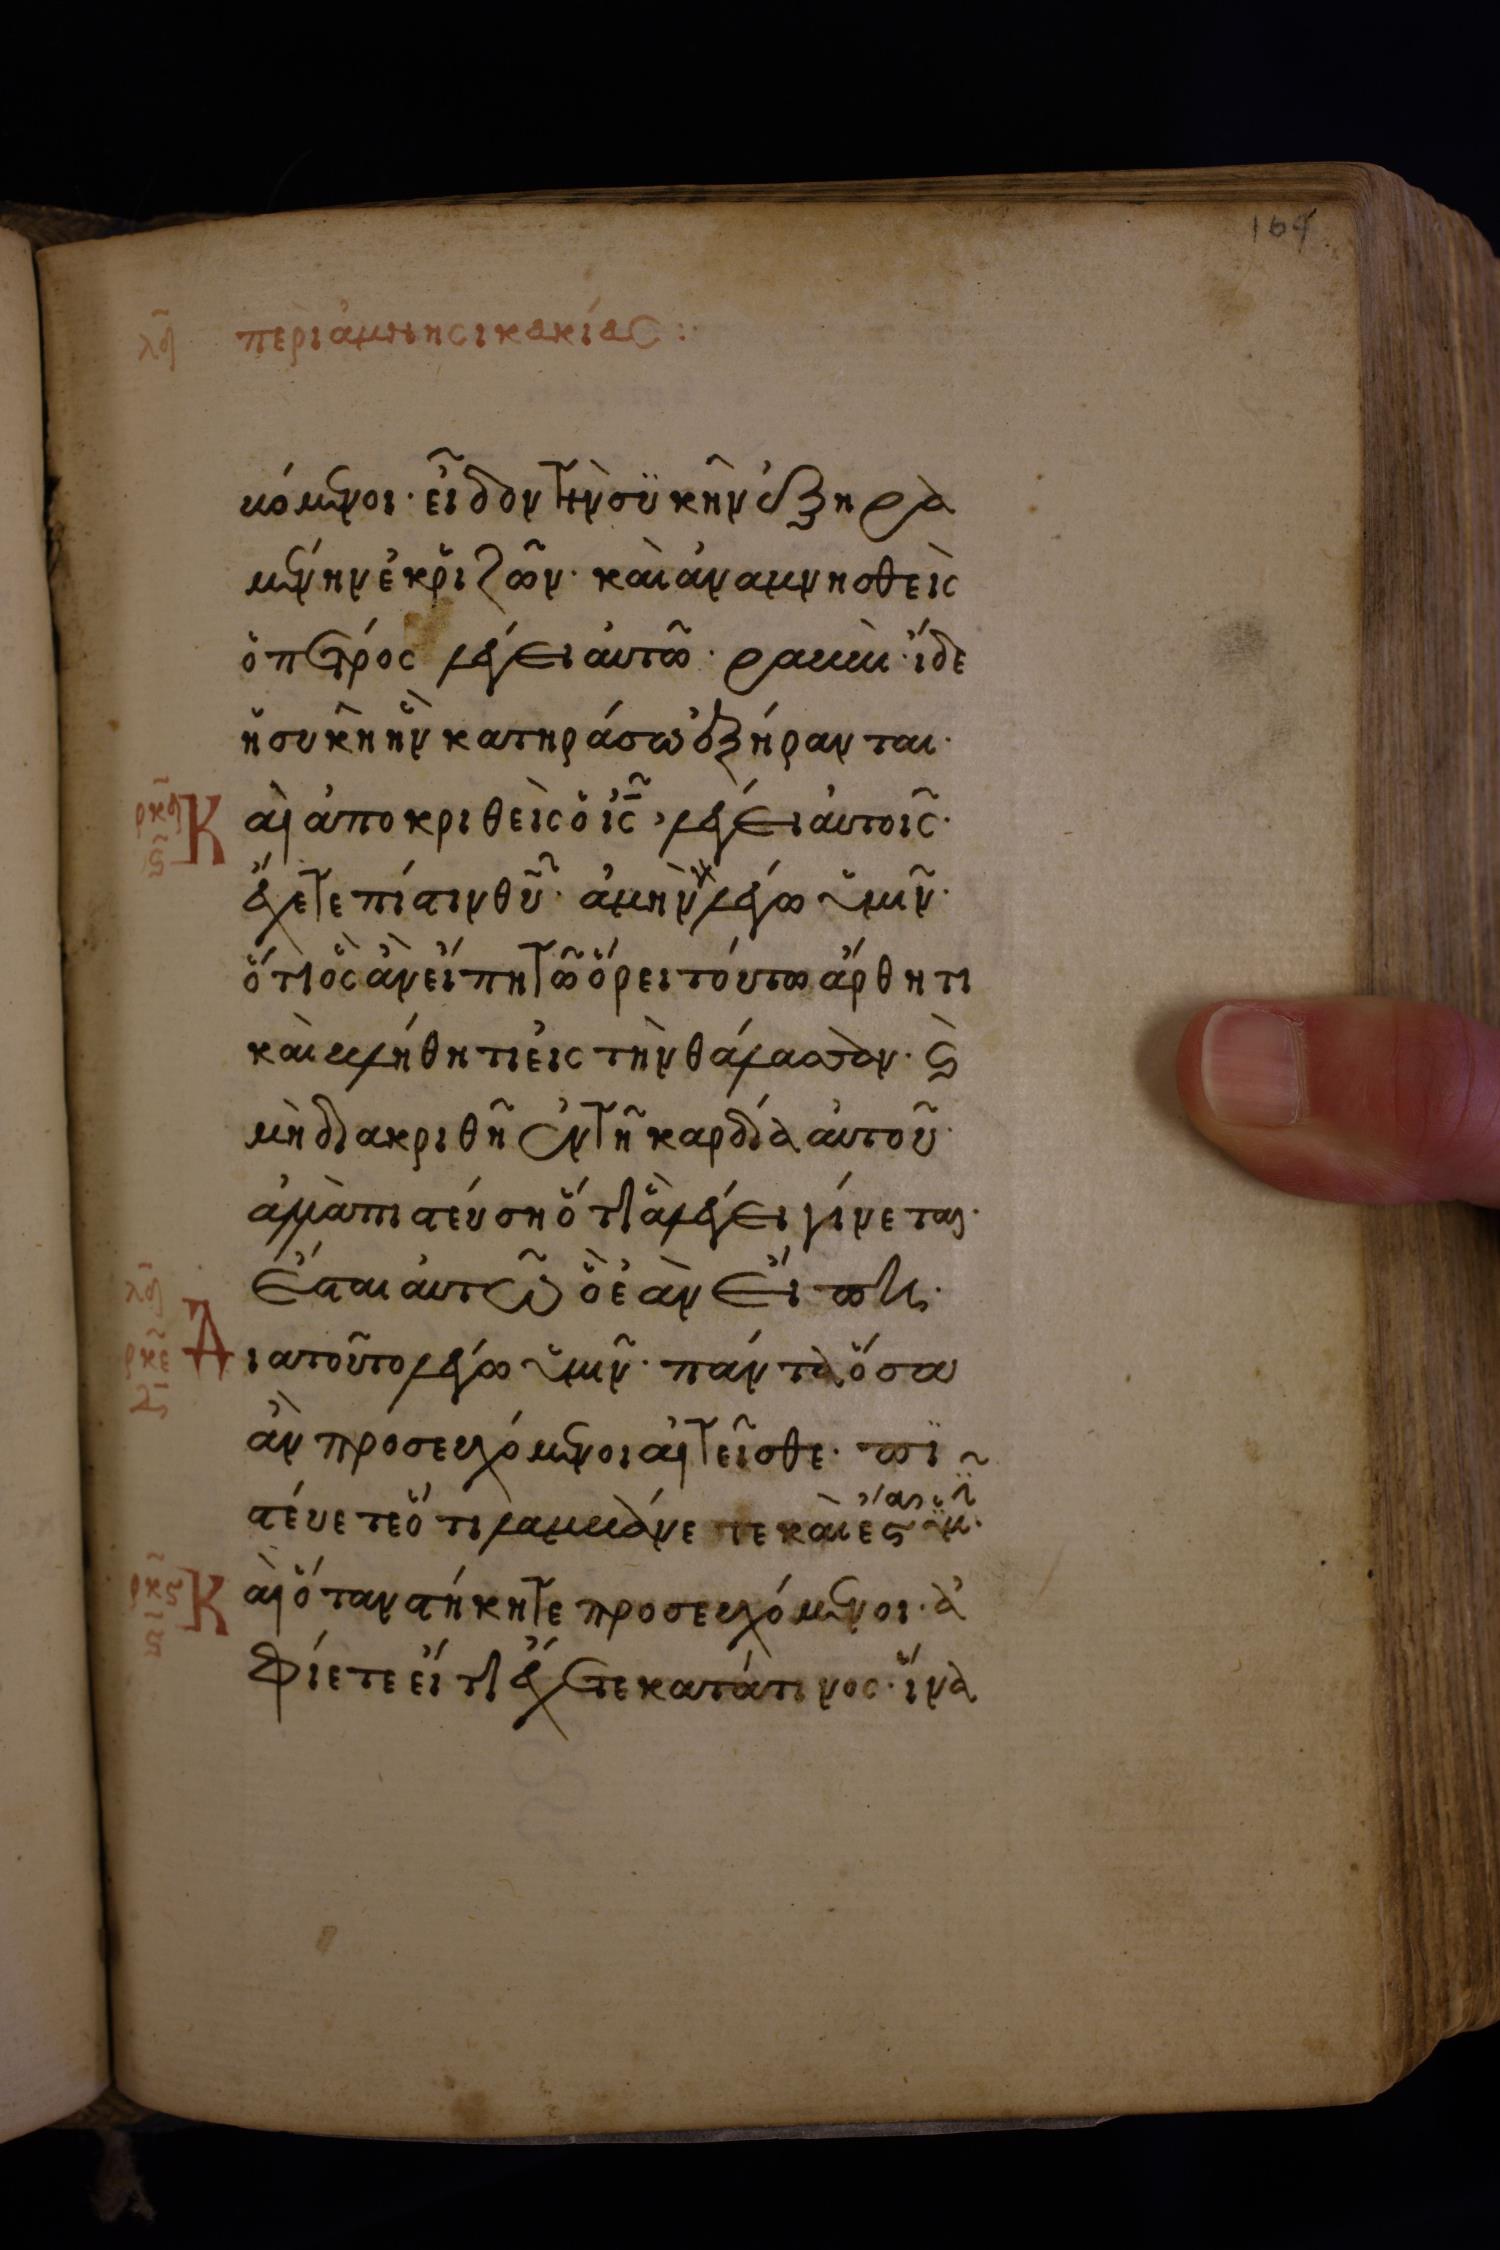 164
λδ περὶ ἀμνησικακίας :
υόμενοι· εἶδον τὴν συκῆν ἐξηρα
μένην ἐκ ῥιζῶν· καὶ ἀναμνησθεὶς
ὁ πέτρος λέγει αὐτῶ· ραββὶ· ἴδε
ἡ συκῆ ἣν κατηράσω ἐξήρανται·
ρκδ Καὶ ἀποκριθεὶς ὁ ις, λέγει αὐτοῖς·
ς ἔχετε πίστιν θυ· ἀμὴν λέγω ὑμῖν·
ὅτι ὃς ἂν εἴπη τῶ ὄρει τούτω ἄρθητι
καὶ βλήθητι εἰς τὴν θάλασσαν· ϛ
μὴ διακριθῆ ἐν τῆ καρδία αὐτοῦ·
ἀλλὰ πιστεύση ὅτι ἃ λέγει γίνεται·
ἔσται αὐτῶ ὃ ἐὰν εἴπη·
λδ ρκε Διατοῦτο λέγω ὑμῖν· πάντα ὅσα
ἂν προσευχόμενοι αἰτεῖσθε· πισ
τεύετε ὅτι λαμβάνετε καὶ ἔσται ὑμῖν·
ρκς Καὶ ὅταν στήκητε προσευχόμενοι· ἀ
ς φίετε εἴ τι ἔχετε κατά τινος· ἵνα